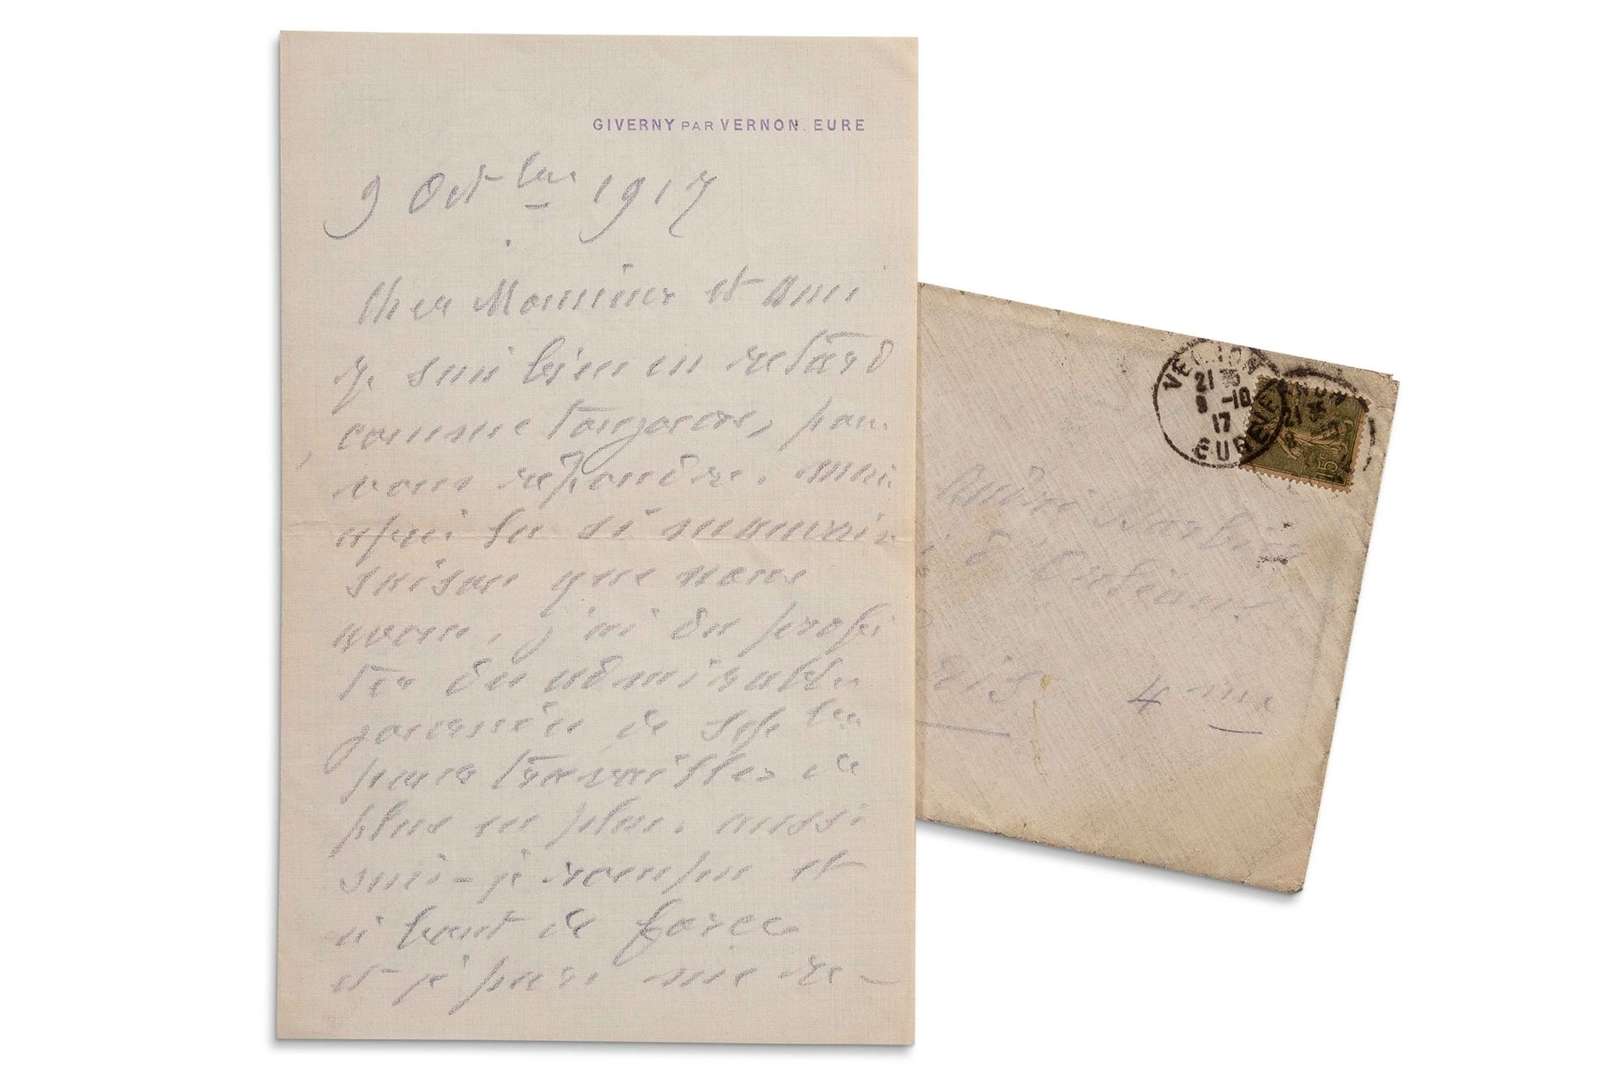 GIVERNY PAR VERNON. EURE
9 Octbre 1917
Cher Monsieur et ami
je suis bien en retard
comme toujours, pour
vous répondre. Mais
après la si mauvaise
saison que nous
avons, j'ai du profi
ter des admirables
journées de Sepbre
pour travailler de
plus en plus. aussi
suis-je rompu et
à bout de force
et je pars me re-
VERNON
21 35
9 -10
17
EURE
15
André
d'Orléans
4eme